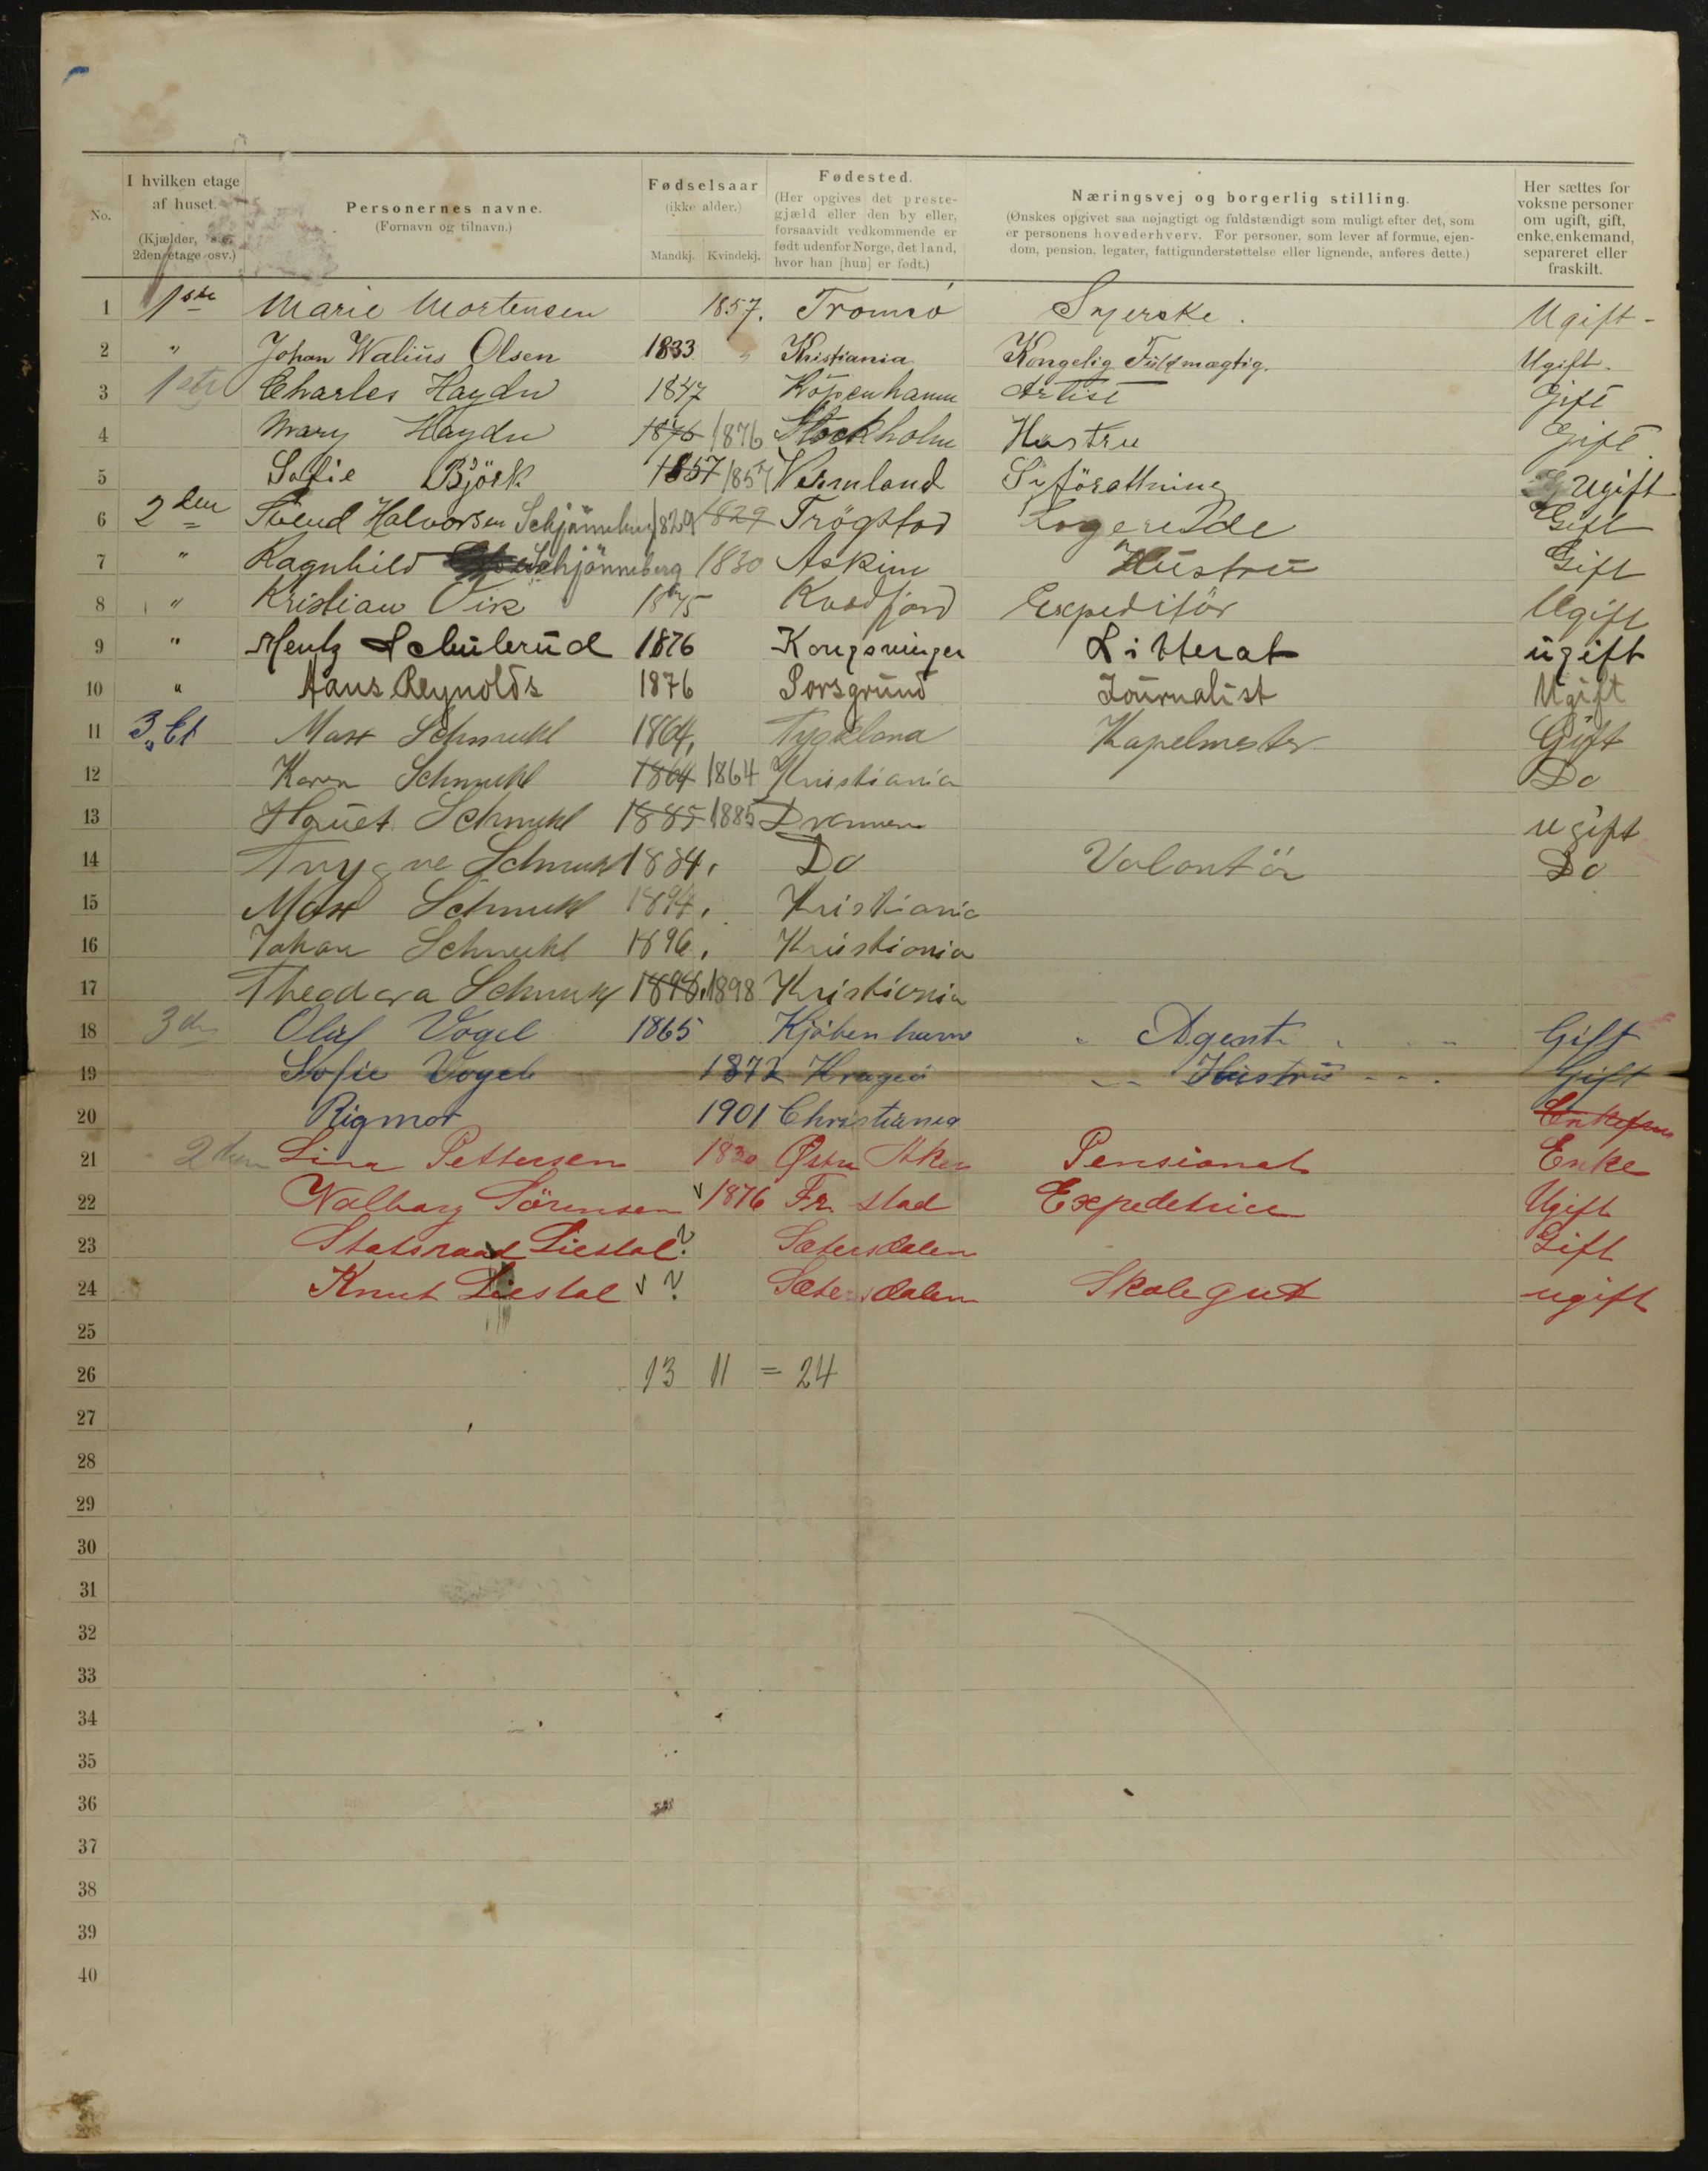 No.
I hvilken etage af huset. (Kjælder, 2den etage osv.)
Personernes navne. (Fornavn og tilnavn.)
Fødselsaar (ikke alder.) Mandkj. Kvindekj.
Fødested. (Her opgives det prestegjæld eller den by eller, forsaavidt vedkommende er født udenfor Norge, det land, hvor han [hun] er født.)
Næringsvej og borgerlig stilling. (Ønskes opgivet saa nøjagtigt og fuldstændigt som muligt efter det, som er personens hovederhverv. For personer, som lever af formue, ejendom, pension, legater, fattigunderstøttelse eller lignende, anføres dette.)
Her sættes for voksne personer om ugift, gift, enke, enkemand, separeret eller fraskilt.
1 1ste Marie Mortensen 1857. Tromsö Syerske. Ugift-
2 " Johan Walius Olsen 1833 " Kristiania Kongelig Fuldmægtig. Ugift.
3 1ste Charles Haydn 1847 Köpenhamn Artist Gift
4 Mary Haydn 1876 1876 Stockholm Hustru Gift
5 Sofie Björk 1857 1857 Vermland Syförattning Ugift
6 2den Svend Halvorsen Schjönneberg 1829 1829 Trögstad Logerende Gift
7 " Ragnhild Schjönneberg 1830 Askim Hustru Gift
8 " Kristian Vik 1875 Kvædfjord Expeditör Ugift
9 " Mentz Schulerud 1876 Kongsvinger Litterat ugift
10 " Hans Reynolds 1876 Porsgrund Journalist Ugift
11 3. Et Max Schmukl 1864. Tyskland Kapelmester Gift
12 Karen Schmukl 1864 1864 Kristiania Do
13 Schmukl 1885 1885 Drammen ugift
14 Trygve Schmukl 1884. Do Volontör Do
15 Max Schmukl 1894. Kristiania
16 Johan Schmukl 1896. Kristiania
17 Theodora Schmukl 1898. 1898 Kristiania
18 3die Oluf Vogel 1865 Kjöbenhavn Agent Gift
19 Sofie Vogel 1872 Kragerö Hustru Gift
20 Rigmor 1901 Christiania Enkefrue
21 2den Lina Pettersen 1830 Østre Aker Pensionat Enke
22 Valborg Sörensen v 1876 Fr. stad Expeditrice Ugift
23 Statsraad Liestøl ? Sætersdalen Gift
24 Knut Liestøl v ? Sætersdalen Skolegut ugift
25
26 13 11 = 24
27
28
29
30
31
32
33
34
35
36
37
38
39
40